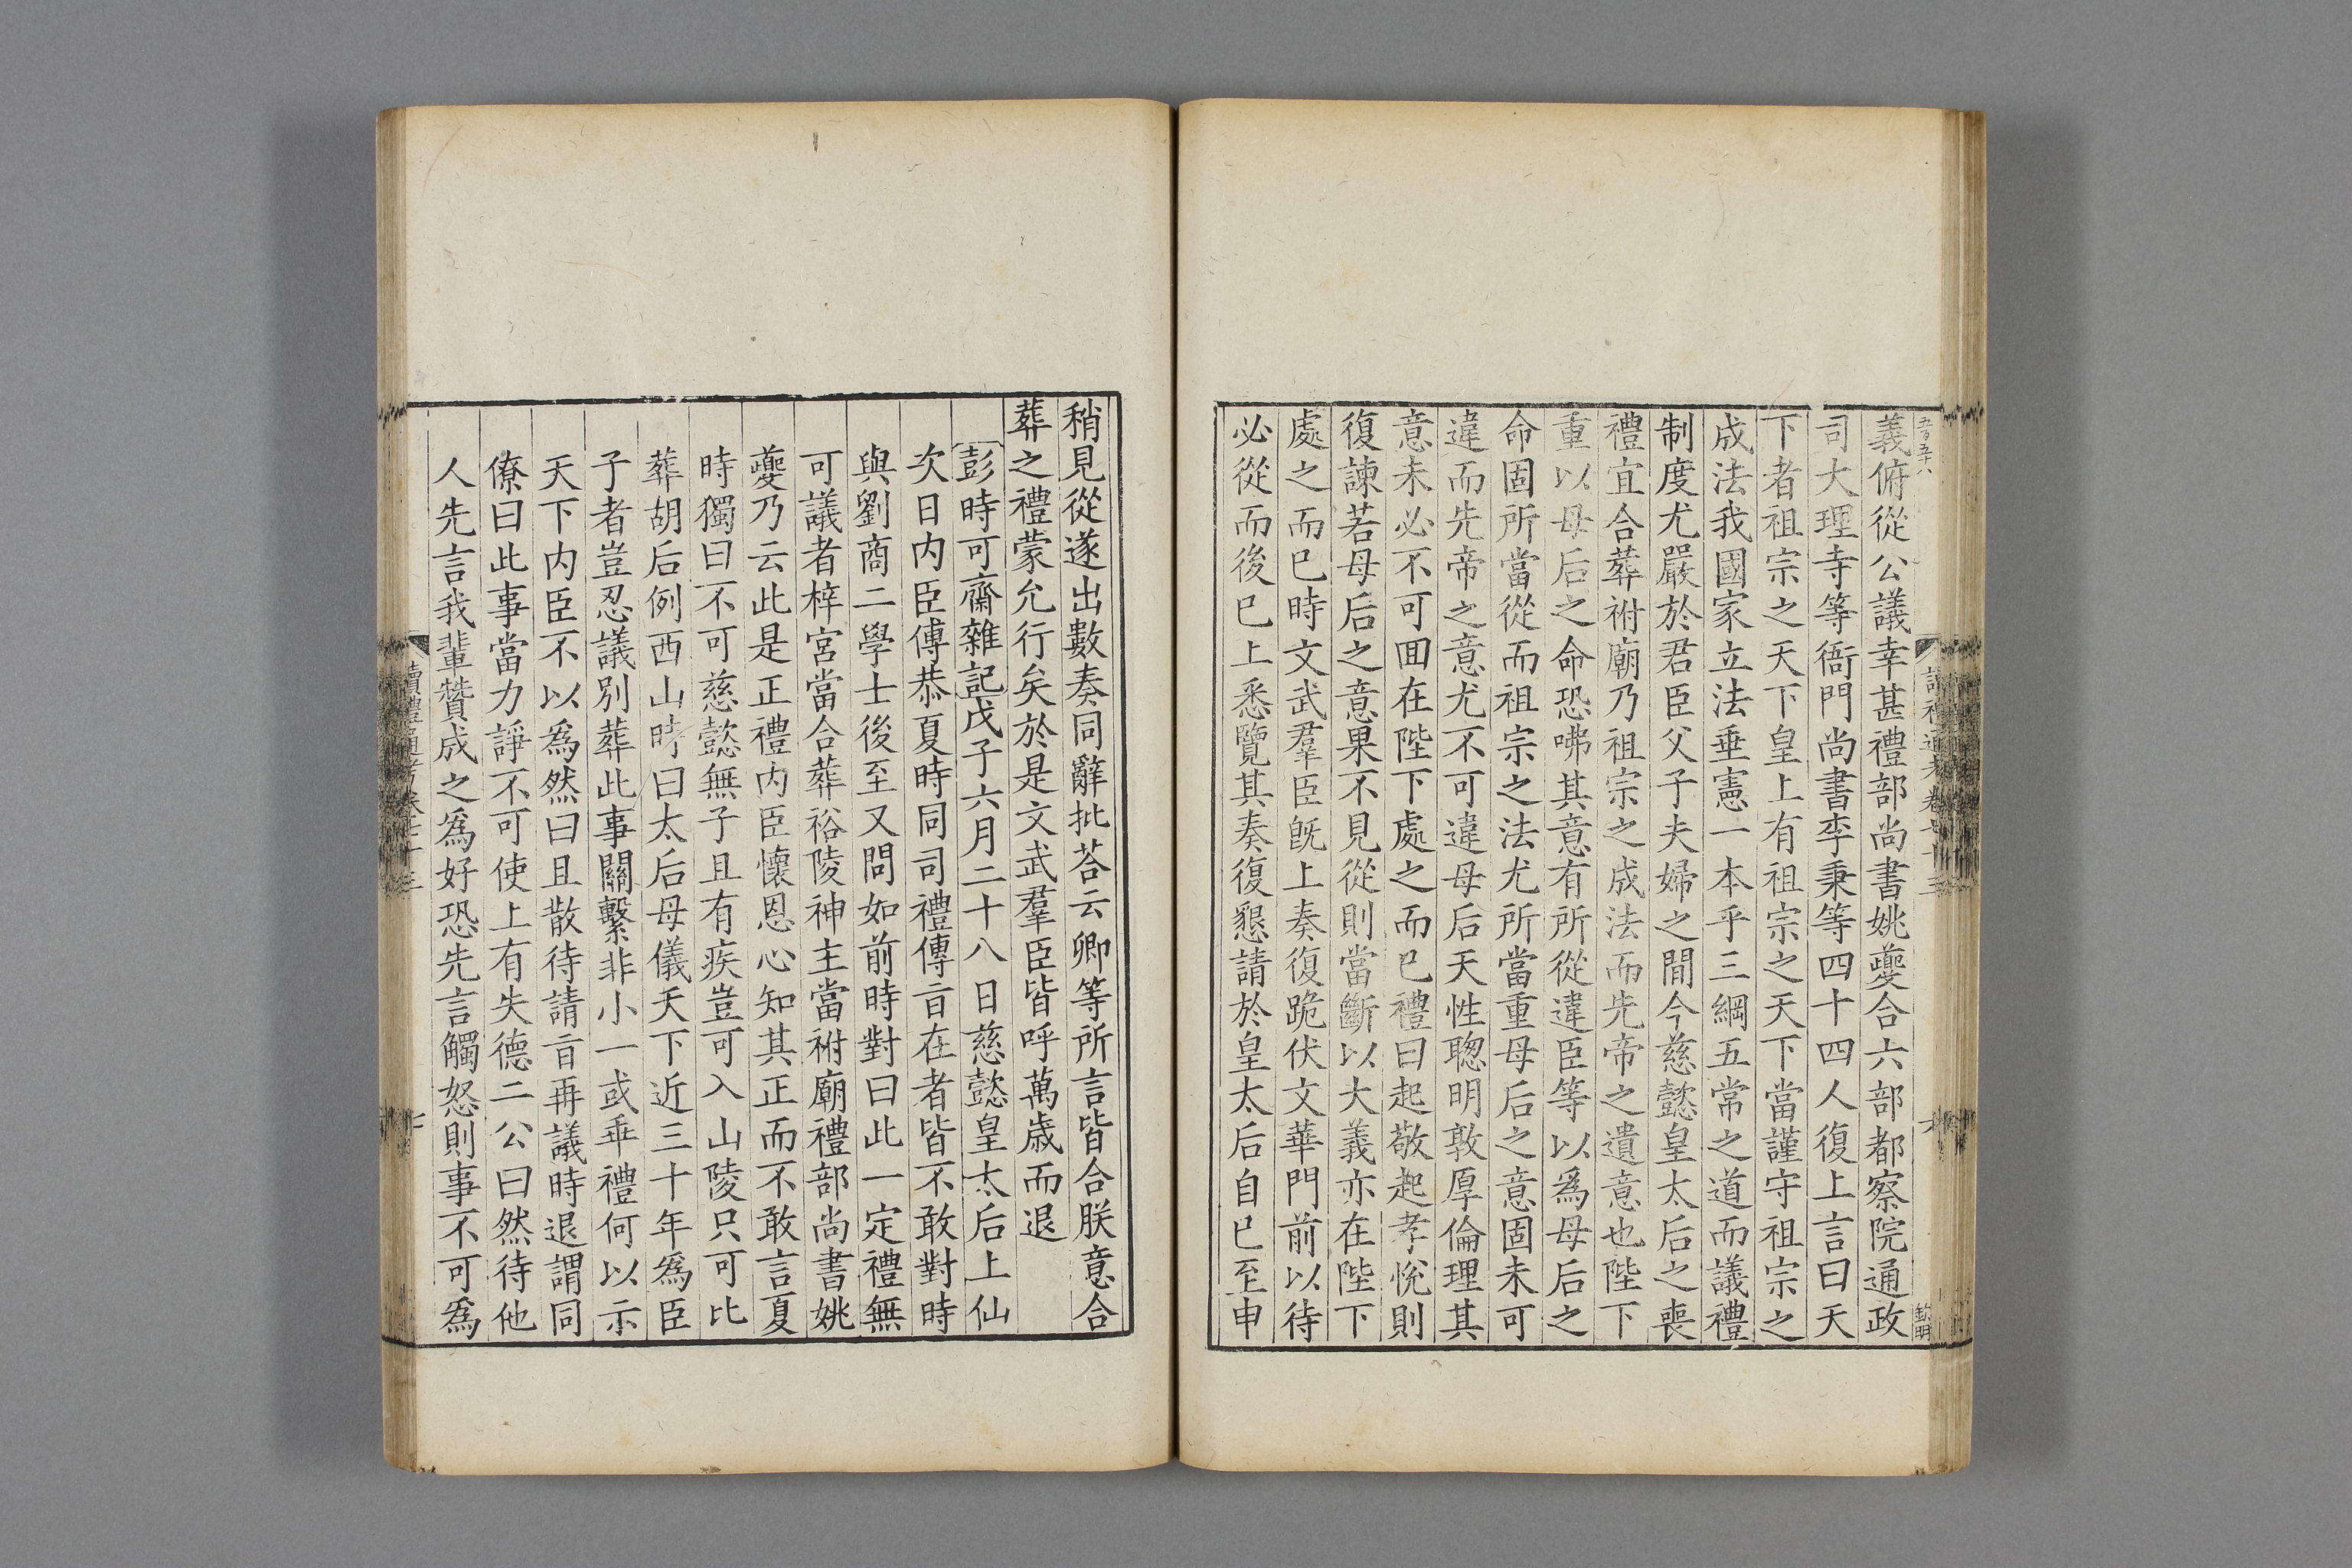 五百五十八
義俯從公議幸甚禮部尚書姚夔合六部都察院通政
司大理寺等衙門尚書李秉等四十四人復上言曰天
下者祖宗之天下皇上有祖宗之天下當謹守祖宗之
成法我國家立法垂憲一本乎三綱五常之道而議禮
制度尤嚴於君臣父子夫婦之間今慈懿皇太后之喪
禮宜合葬祔廟乃祖宗之成法而先帝之遺意也陛下
重以母后之命恐咈其意有所從違臣等以爲母后之
命固所當從而祖宗之法尤所當重母后之意固未可
違而先帝之意尤不可違母后天性聰明敦厚倫理其
意未必不可囬在陛下處之而已禮曰起敬起孝悅則
復諫若母后之意果不見從則當斷以大義亦在陛下
處之而已時文武羣臣旣上奏復跪伏文華門前以待
必從而後已上悉覽其奏復懇請於皇太后自巳至申
稍見從遂出數奏同辭批荅云卿等所言皆合朕意合
葬之禮蒙允行矣於是文武羣臣皆呼萬歲而退
彭時可齋雜記戊子六月二十八日慈懿皇太后上仙
次日内臣傅恭夏時同司禮傳㫖在者皆不敢對時
與劉商二學士後至又問如前時對曰此一定禮無
可議者梓宮當合葬裕陵神主當祔廟禮部尚書姚
夔乃云此是正禮内臣懷恩心知其正而不敢言夏
時獨曰不可慈懿無子且有疾豈可入山陵只可比
葬胡后例西山時曰太后母儀天下近三十年爲臣
子者豈忍議别葬此事關繫非小一或乖禮何以示
天下内臣不以爲然曰且散待請㫖再議時退謂同
僚曰此事當力諍不可使上有失德二公曰然待他
人先言我輩贊成之爲好恐先言觸怒則事不可爲
讀禮通考卷七十三